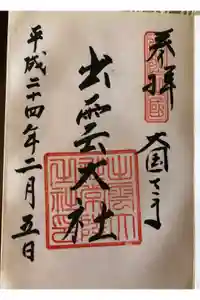 奉拝
大国さま
出雲大社
平成二十四年二月五日